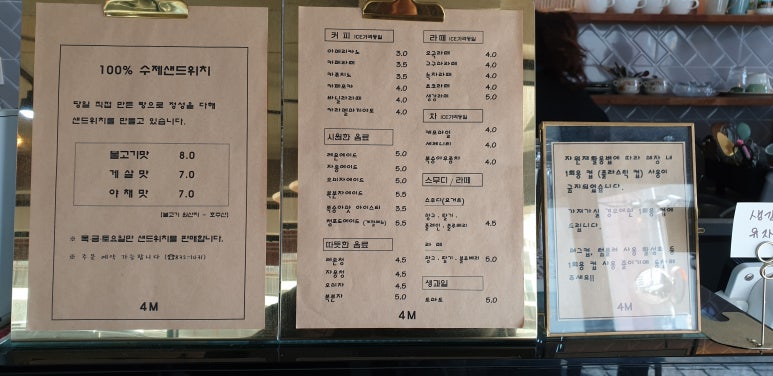 100% 수제샌드위치
당일 직접 만든 빵으로 정성을 다해
샌드위치를 만들고 있습니다.
불고기맛 8.0
게살맛 7.0
야채맛 7.0
(불고기 원산지 - 호주산)
※ 목·금·토요일만 샌드위치를 판매합니다.
※ 주문 예약 가능합니다
4M
커피 ICE가격동일
아메리카노 3.0
카페라떼 3.5
카푸치노 3.5
카페모카 4.0
바닐라라떼 4.0
카라멜마끼아또 4.0
시원한 음료
레몬에이드 5.0
자몽에이드 5.0
오미자에이드 5.0
복분자에이드 5.5
복숭아맛 아이스티 3.5
청포도에이드 5.5
따뜻한 음료
레몬청 4.5
자몽청 4.5
오미자 4.5
복분자 5.0
라떼 ICE가격동일
오곡라떼 4.0
고구마라떼 4.0
녹차라떼 4.0
초코라떼 4.0
생강라떼 5.0
차 ICE가격동일
캐모마일 4.0
히비스커스 4.0
복숭아우롱차 4.0
스무디 / 라떼
스무디(요거트)
망고·딸기· 5.0
플레인·블루베리
라떼
망고·딸기·블루베리 5.0
생과일
토마토 5.0
4M
자원재활용법에 따라 매장 내
1회용 컵 (플라스틱 컵) 사용이
금지되었습니다.
가져가실 경우에만 1회용 컵에
드립니다.
머그컵, 텀블러 사용 활성화 등
1회용 컵 사용 줄이기에 동참해
주세요!!
4M